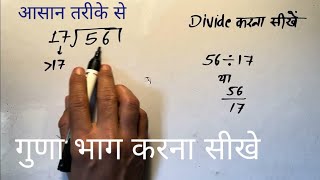 आसान तरीके से
Divide करना सीखें
17√56
>17
56÷17
या
56
17
गुणा भाग करना सीखे